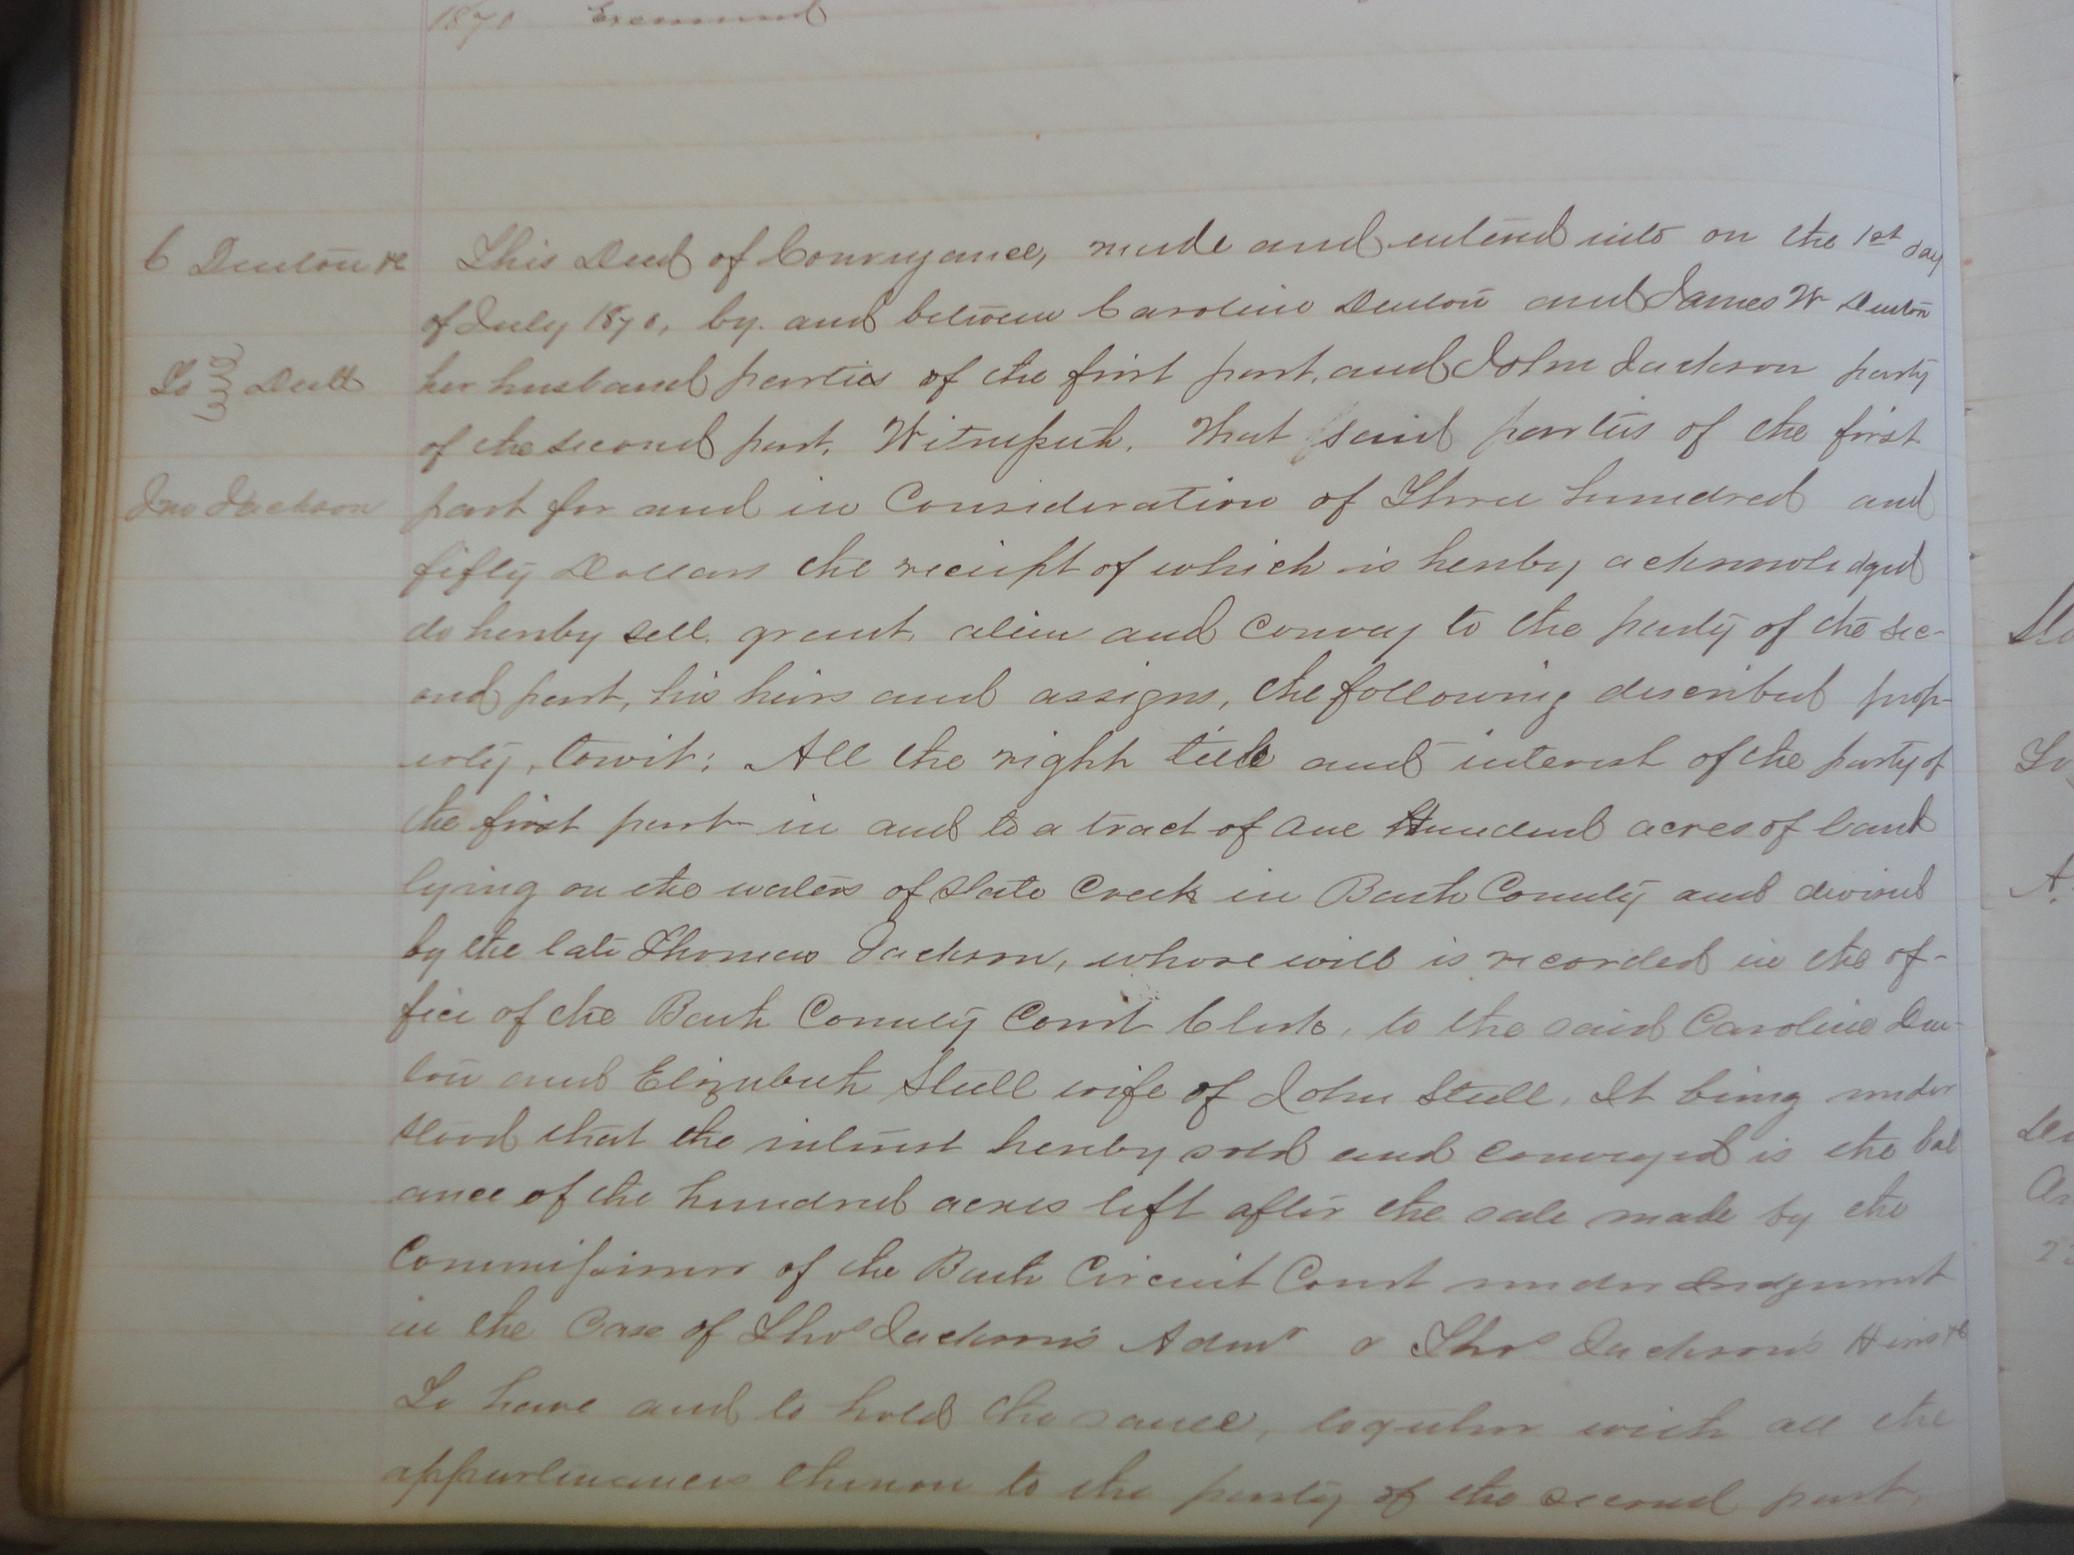 1870 Examined
C Denton &c
To Deed
Jno Jackson
This Deed of Conveyance, made and entered into on the 1st day
of July 1870, by and between Caroline Denton and James W Denton
her husband parties of the first part, and John Jackson party
of the second part, Witnesseth, That said parties of the first
part for and in Consideration of Three hundred and
fifty Dollars the reciept of which is hereby acknowledged
do hereby sell grant alien and convey to the party of the sec-
ond part, his heirs and assigns, the following described prop-
erty, towit; All the right title and interest of the party of
the first part in and to a tract of one Hundred acres of land
lying on the waters of Slate Creek in Bath County and devised
by the late Thomas Jackson, whose will is recorded in the of-
fice of the Bath County Court Clerk, to the said Caroline Den-
ton and Elizabeth Stull wife of John Stull, It being under
stood that the interest hereby sold and conveyed is the bal
ance of the hundred acres left after the sale made by the
Commissioner of the Bath Circuit Court under Judgment
in the Case of Thos Jackson's Admr Thos Jackson's Heirs &c
To have and to hold the same, together with all the
appurtenances thereon to the party of the second part,